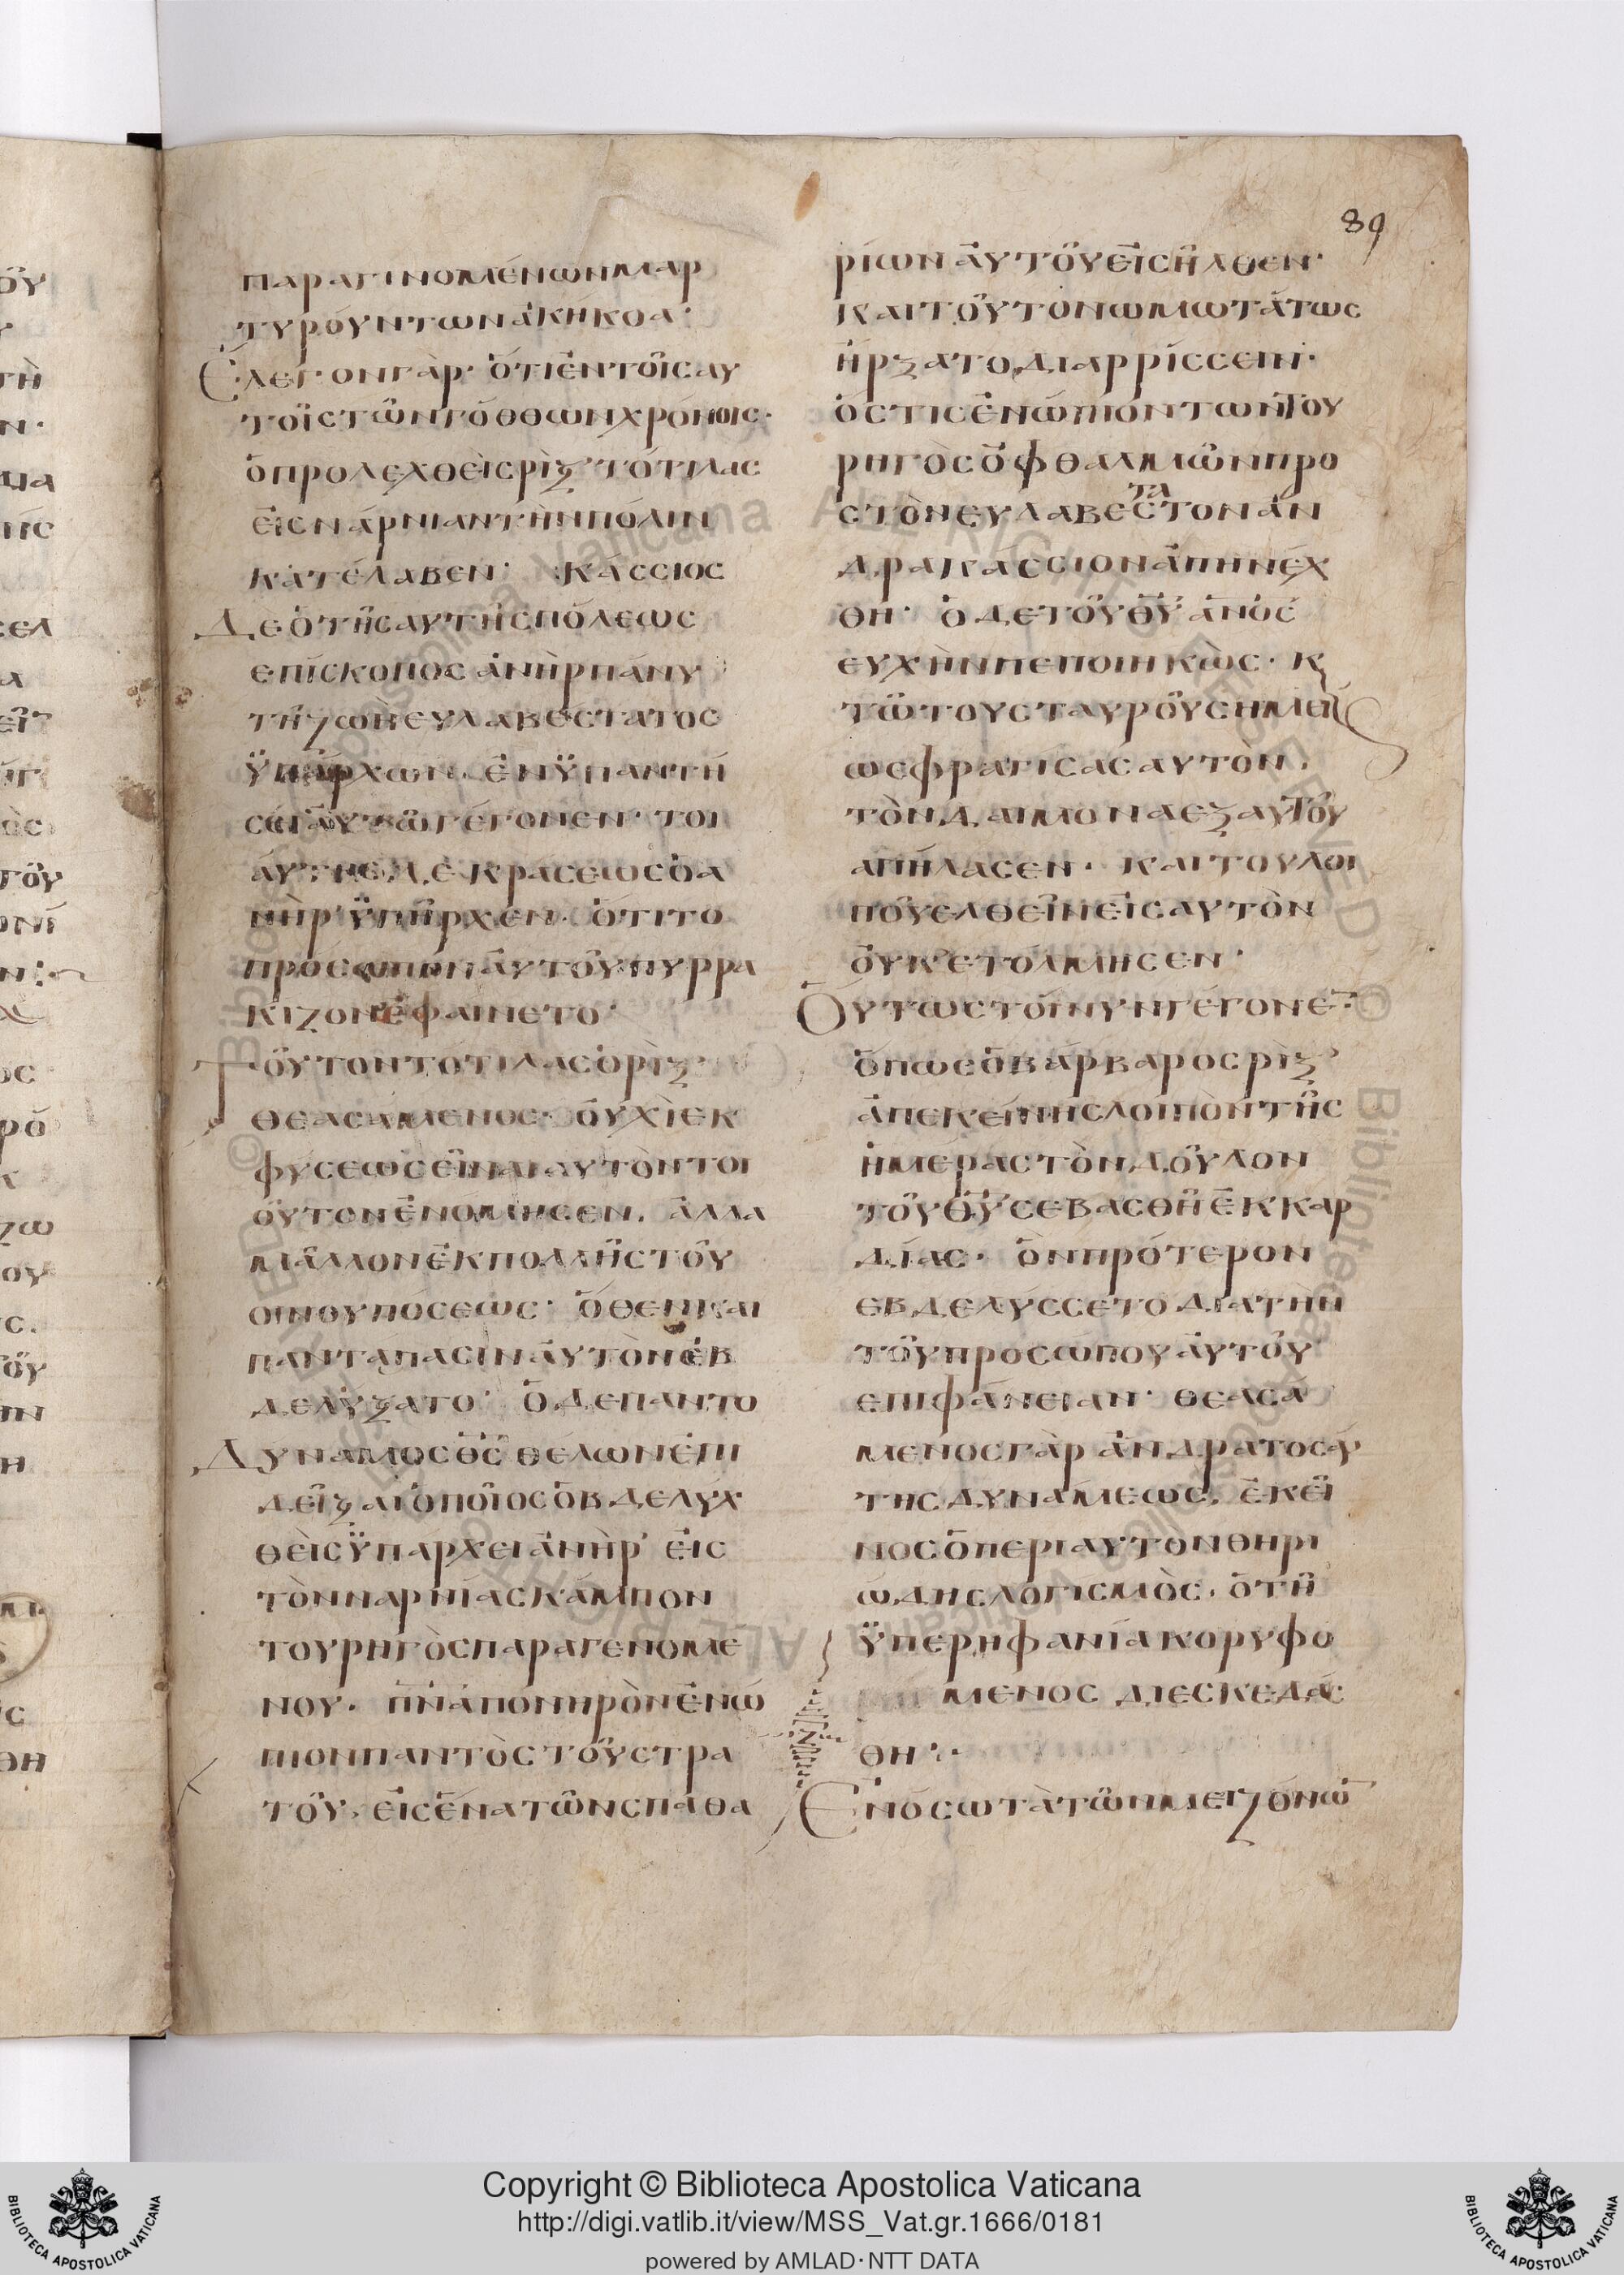 89
παραγινομένων μαρ
τυρούντων ἀκήκοα·
Ἔλεγον γὰρ· ὅτι ἐν τοῖς αυ
τοῖς τῶν γόθθων χρόνοις·
ὁ προλεχθεὶς ρὶξ τότιλας
εἰς νάρνιαν τὴν πόλιν
κατέλαβεν· κάσσιος
Δε ὁ τῆς αυτῆς πόλεως
επίσκοπος ἀνὴρ πάνυ
τῆ ζωῆ ευλαβέστατος
ϋπάρχων. ἐν ϋπαντή
σει ἀυτῶ γέγονεν· τοι
ἁυτης δὲ κράσεως ὁ α
νὴρ ϋπῆρχεν· ὅτι το
πρόσωπον ἀυτοῦ πυρρα
κίζον ἐφαίνετο·
Τοῦτον τότιλας ὁ ρὶξ·
θεασάμενος· ὀυχὶ εκ
φύσεως εἶναι αυτὸν τοι
οῦτον ἐνόμησεν. ἀλλα
μᾶλλον ἐκ πολλῆς τοῦ
οινου πόσεως· ὅθεν και
πανταπασιν ἀυτὸν ἐβ
δελύξατο· ὁ δε παντο
Δυναμος θς θέλων ἐπι
δεῖξαι ὁποῖος ὁ βδελυχ
θεὶς ϋπαρχει ἀνὴρ εἰς
τὸν ναρνίας κάμπον
του ρηγὸς παραγενομε
νου. πνα πονηρὸν ἐνώ
πιον παντὸς τοῦ στρα
τοῦ, εἰς ἕνα τῶν σπαθα
ρίων ἀυτοῦ εἰσῆλθεν·
και τοῦτον ωμωτάτως
ἤρξατο διαρρίσσειν·
ὅστις ἐνώπιον των του
ρηγὸς ὀφθαλμῶν προ
στὸν ευλαβεστατον ἄν
δρα κάσσιον ἀπηνέχ
θη· ὁ δε τοῦ θυ ανος
ευχὴν πεποιηκὼς· κ
τῶ του σταυροῦ σημεί
ω σφραγίσας αυτὸν,
τὸν δαιμονα εξ αυτοῦ
απήλασεν· και του λοι
ποῦ ελθεῖν εἰς αυτὸν
ὀυκ ετόλμησεν·
Ὅυτως τοίνυν γέγονεν
ὅπως ὁ βάρβαρος ρὶξ
ἀπεκείνης λοιπὸν τῆς
ἡμέρας τὸν δοῦλον
τοῦ θυ σεβασθῆ ἐκ καρ
δίας· ὃν πρότερον
εβδελύσσετο διατὴν
τοῦ προσώπου ἀυτοῦ
επιφάνειαν· θεασά
μενος γὰρ ἄνδρα τοσάυ
της δυνάμεως, ἐκεῖ
νος ὁ περι αυτον θηρι
ώδης λόγισμὸς, ὁ τῆ
ϋπερηφανία κορυφο
μενος διεσκεδάς
θη·
ΙΖ
Ἑνὸς ωτὰ τῶν μειζόνω
Copyright © Biblioteca Apostolica Vaticana
http://digi.vatlib.it/view/MSS_Vat.gr.1666/0181
powered by AMLAD·NTT DATA